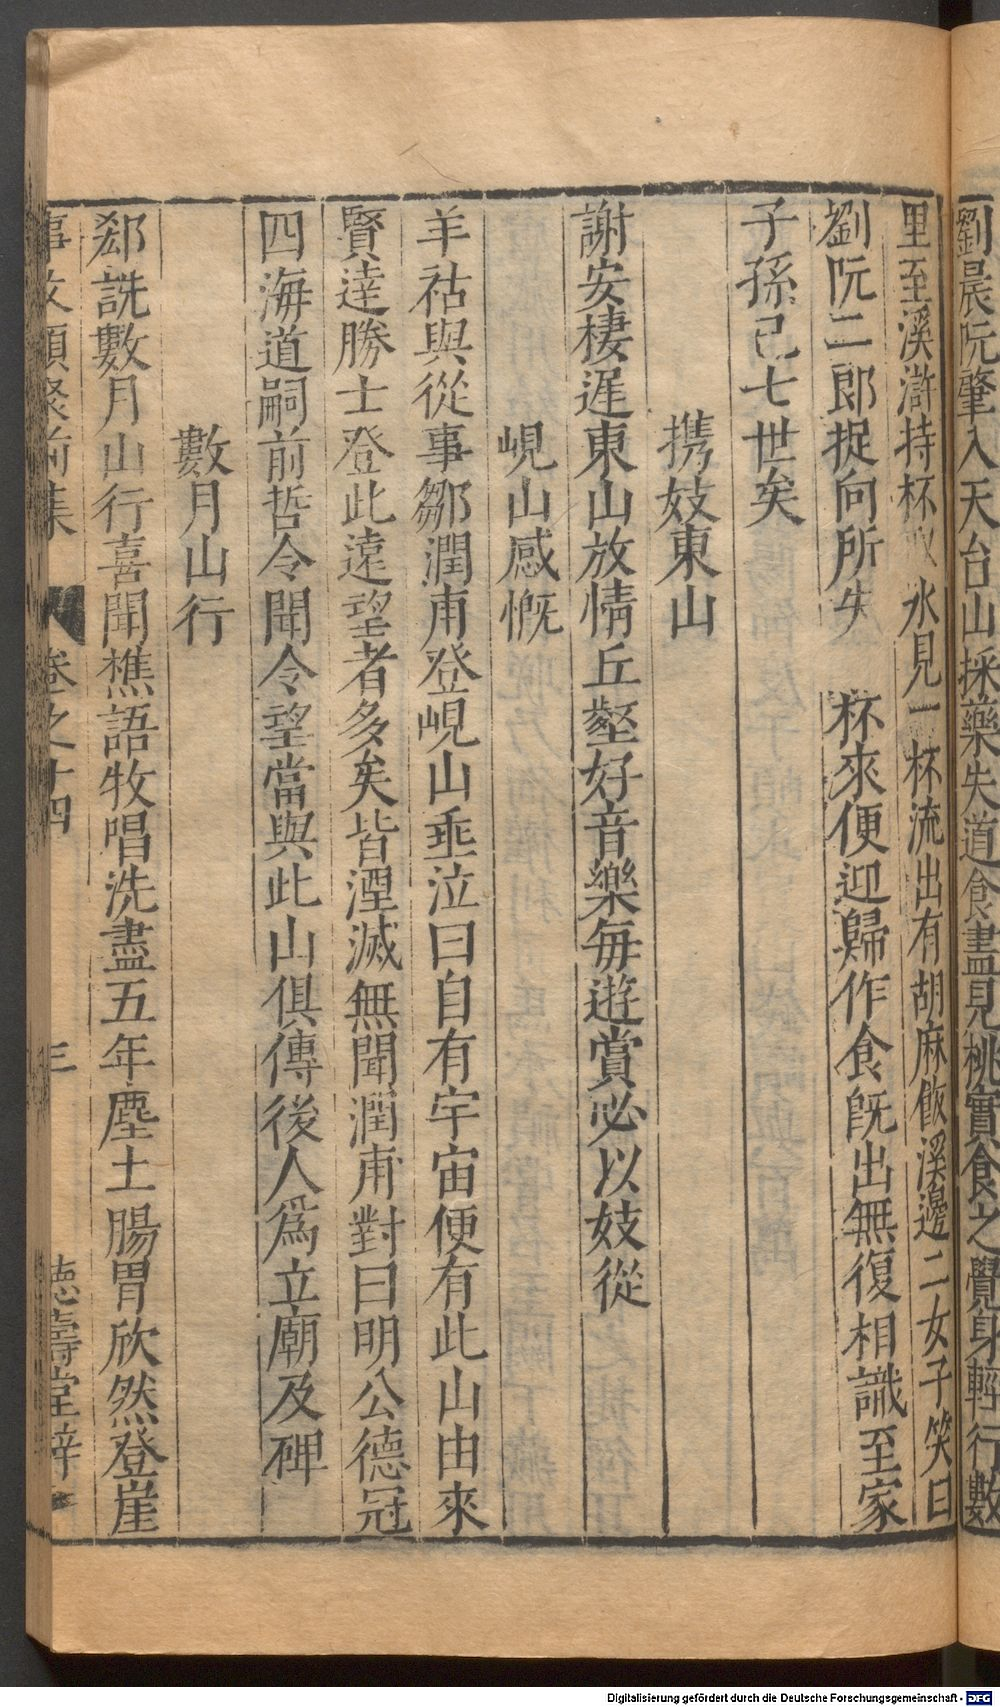 劉晨阮肇入天台山採藥失道食盡見桃實食之覺身輕行數
里至溪滸持杯取水見一杯流出有胡麻飯溪邊二女子笑曰
劉阮二郎捉向所失 杯來便迎歸作食既出無復相識至家
子孫已七世矣
携妓東山
謝安棲遲東山放情丘壑好音樂每遊賞必以妓從
峴山感慨
羊祜與從事鄒潤甫登峴山垂泣曰自有宇宙便有此山由來
賢達勝士登此遠望者多矣皆湮滅無聞潤甫對曰明公德冠
四海道嗣前哲令聞令望當與此山俱傳後人爲立廟及碑
數月山行
郄詵數月山行喜聞樵語牧唱洗盡五年塵土腸胃欣然登崖
事文類聚前集 卷之十四 三 德壽堂梓
Digitalisierung gefördert durch die Deutsche Forschungsgemeinschaft - DFG